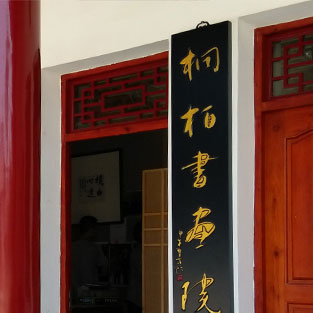 桐柏書畫院